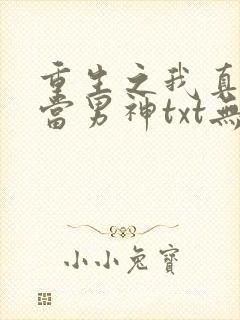 重生之我真
當男神txt無
小小兔寶